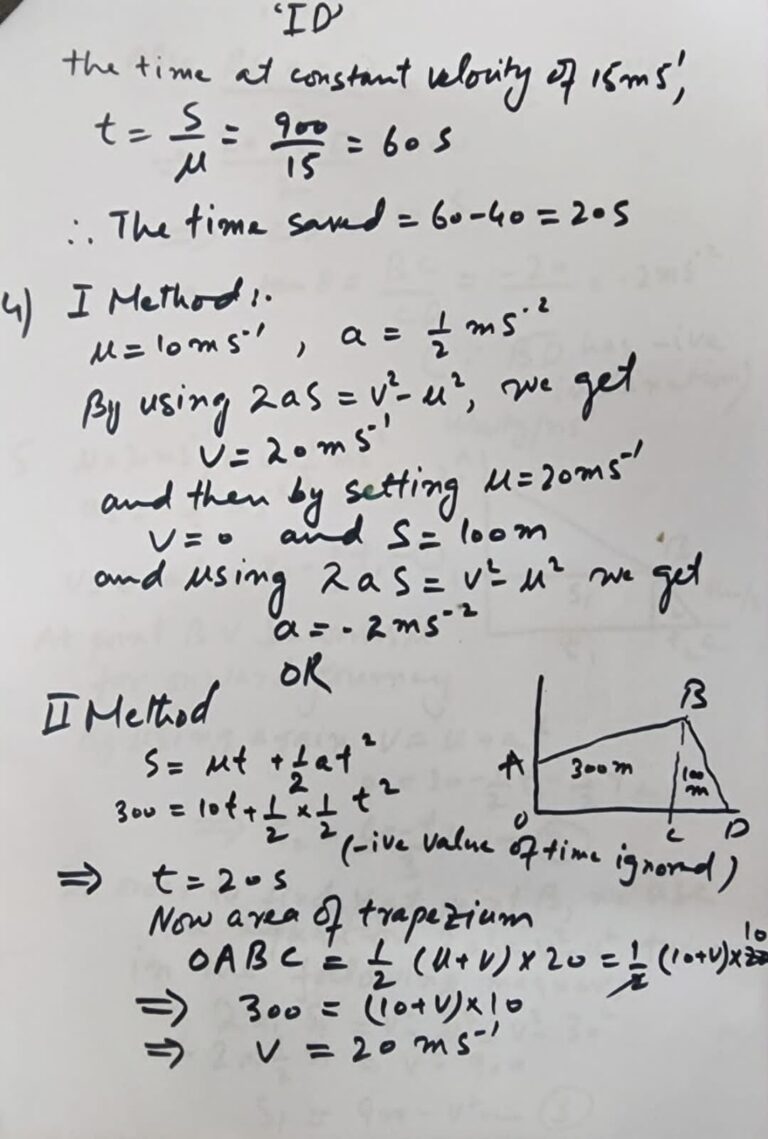 'ID'
the time at constant velocity of 15ms⁻¹,
t = S/u = 900/15 = 60 s
∴ The time saved = 60-40 = 20s
4) I Method:.
u = 10ms⁻¹, a = 1/2 ms⁻²
By using 2aS = v² - u², we get
v = 20ms⁻¹
and then by setting u = 20ms⁻¹
v = 0 and S = 100m
and using 2aS = v² - u² we get
a = -2ms⁻²
OR
II Method
S = ut + 1/2 at²
300 = 10t + 1/2 × 1/2 t²
A B 300m 100 m
O C D
(-ive value of time ignored)
⇒ t = 20s
Now area of trapezium
OABC = 1/2 (u+v) × 20 = 1/2 (10+v) × 20 10
⇒ 300 = (10+v) × 10
⇒ v = 20 ms⁻¹